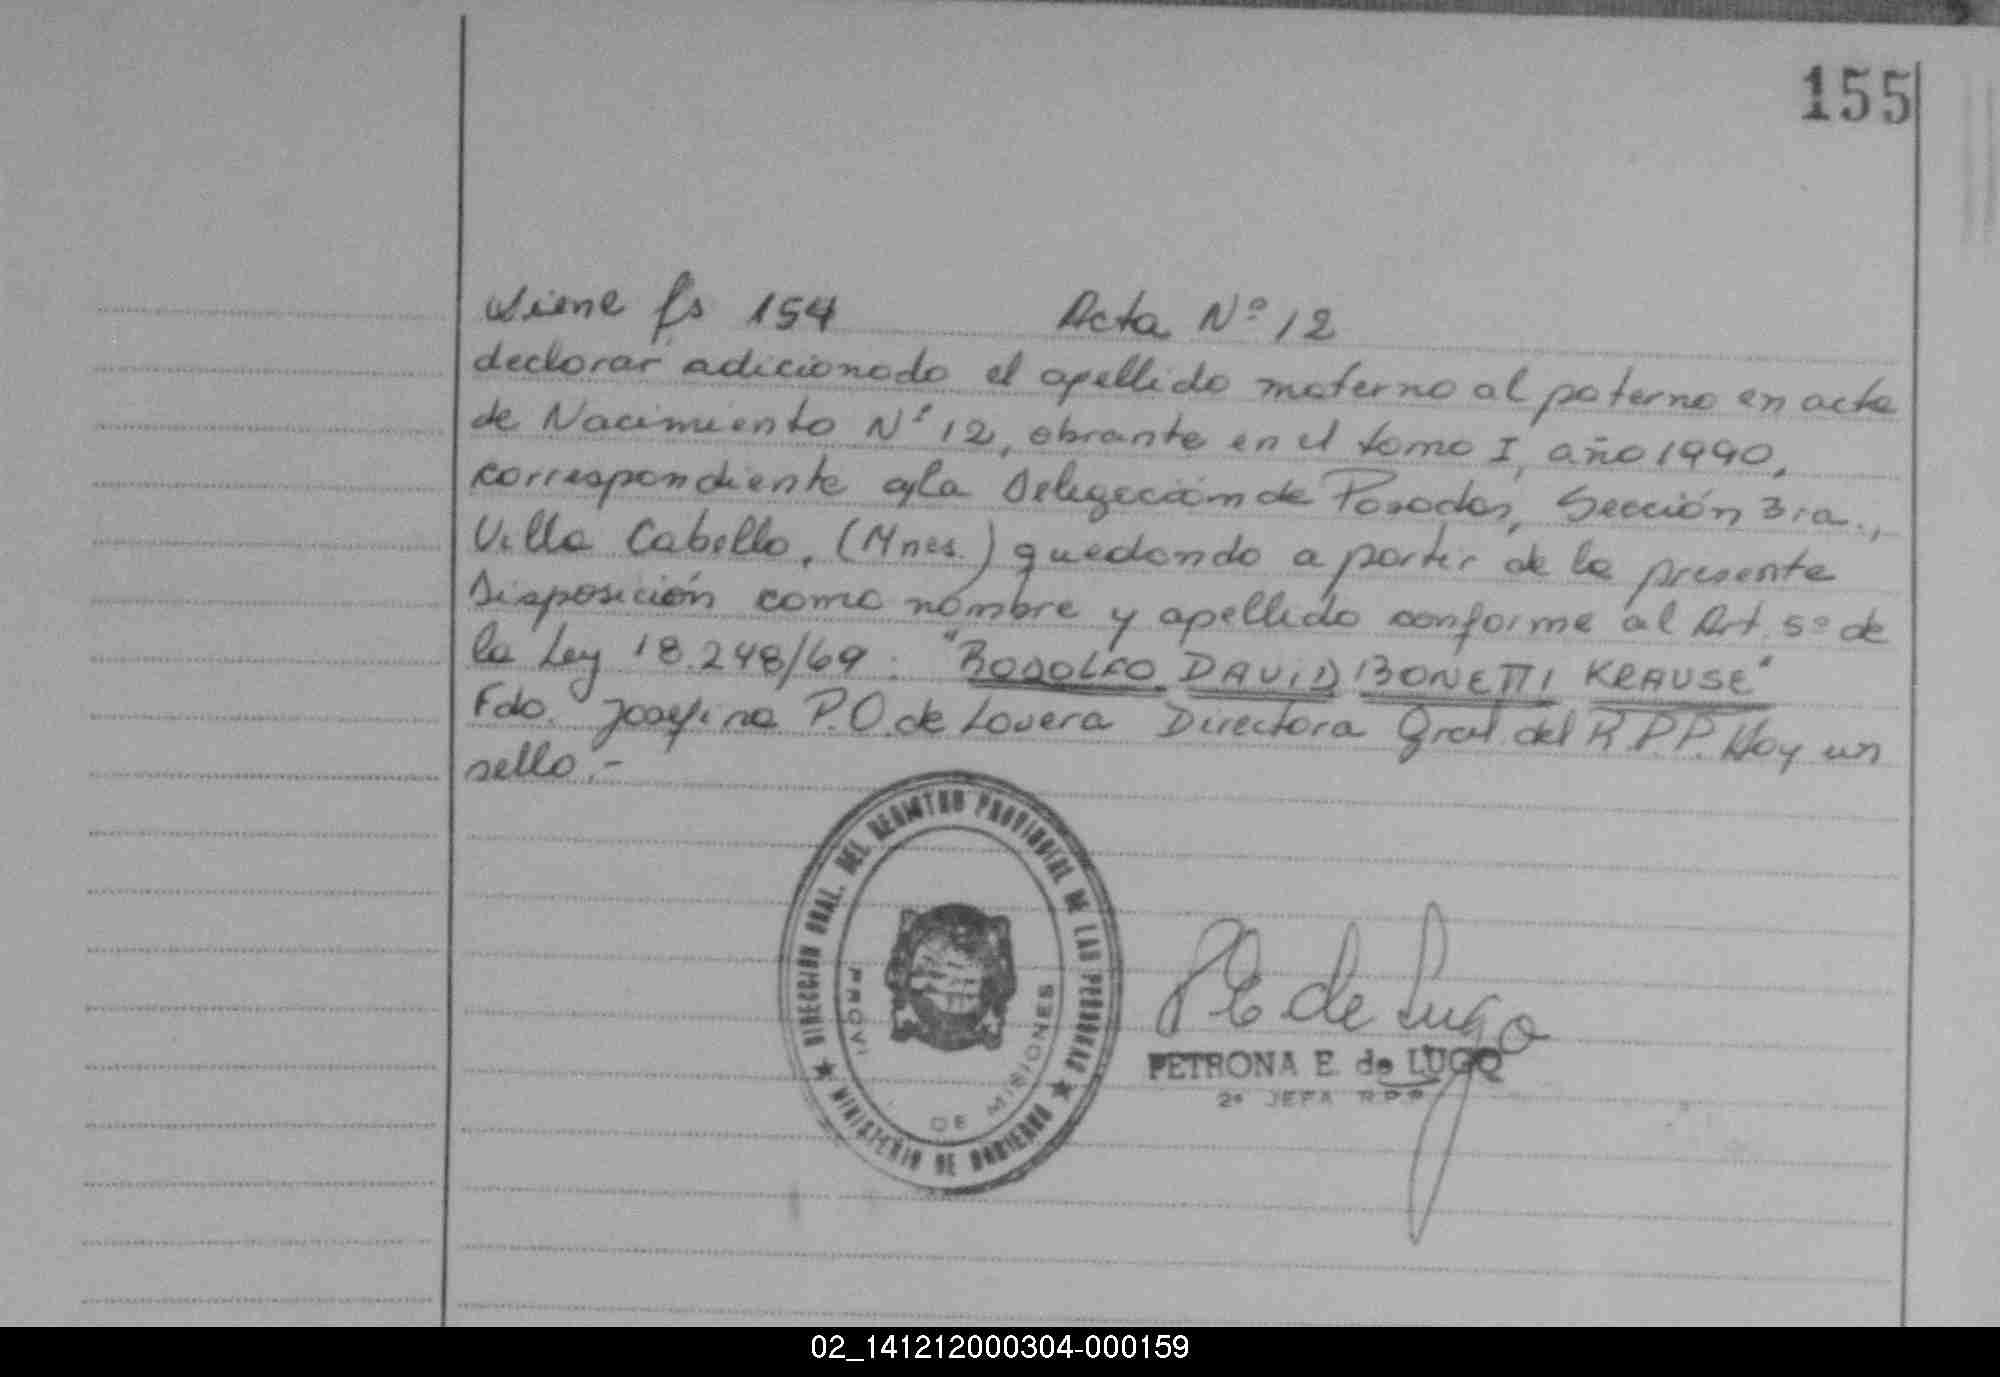 155
Viene fs 154 Acta Nº 12
declarar adicionado el apellido materno al paterno en acta
de Nacimiento Nº 12, obrante en el tomo I, año 1990,
correspondiente a la Delegación de Posadas, Sección 3ra.,
Villa Cabello, (Mnes.) quedando a partir de la presente
Disposición como nombre y apellido conforme al Art. 5º de
la Ley 18.248/69: "RODOLFO DAVID BONETTI KRAUSE"
Fdo. Josefina P.O. de Lovera Directora Gral. del R.P.P. Hay un
sello.-
DIRECCION GRAL. DEL REGISTRO PROVINCIAL DE LAS PERSONAS
★ MINISTERIO DE GOBIERNO ★
PROVI
DE MISIONES
PE de Lugo
PETRONA E. de LUGO
2º JEFA R P P
02_141212000304-000159